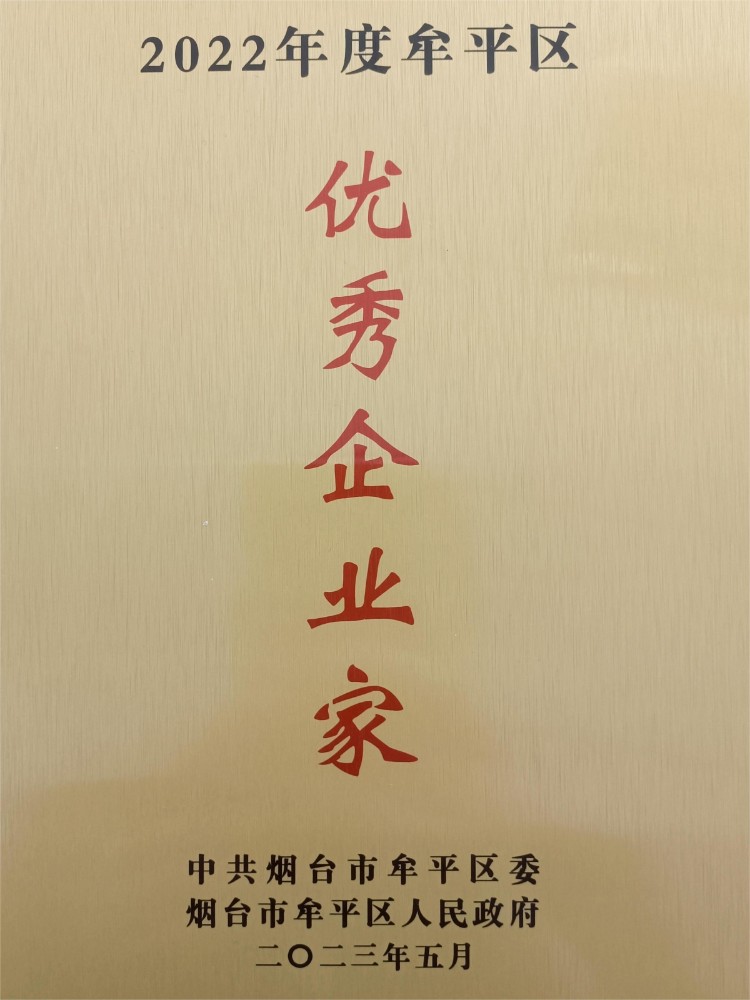 2022年度牟平区
优秀企业家
中共烟台市牟平区委
烟台市牟平区人民政府
二〇二三年五月